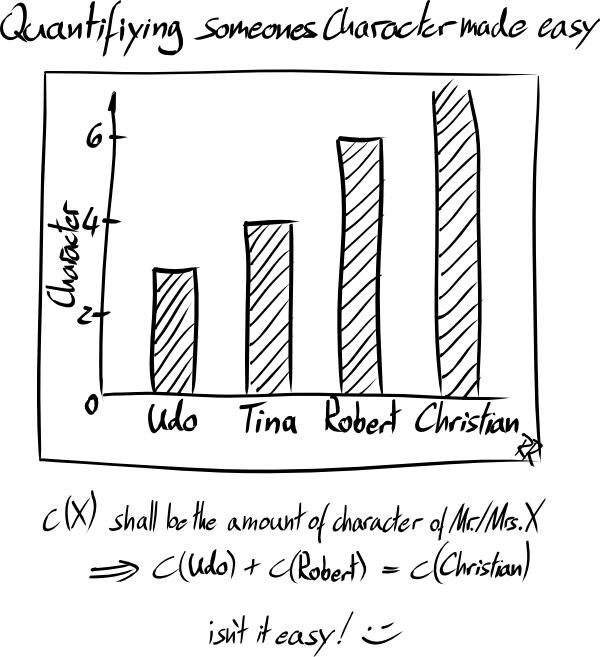 Quantifiying someones Character made easy
6
4
2
0
Character
Udo Tina Robert Christian
c(X) shall be the amount of character of Mr./Mrs. X
⇒ c(Udo) + c(Robert) = c(Christian)
isn't it easy! :-)